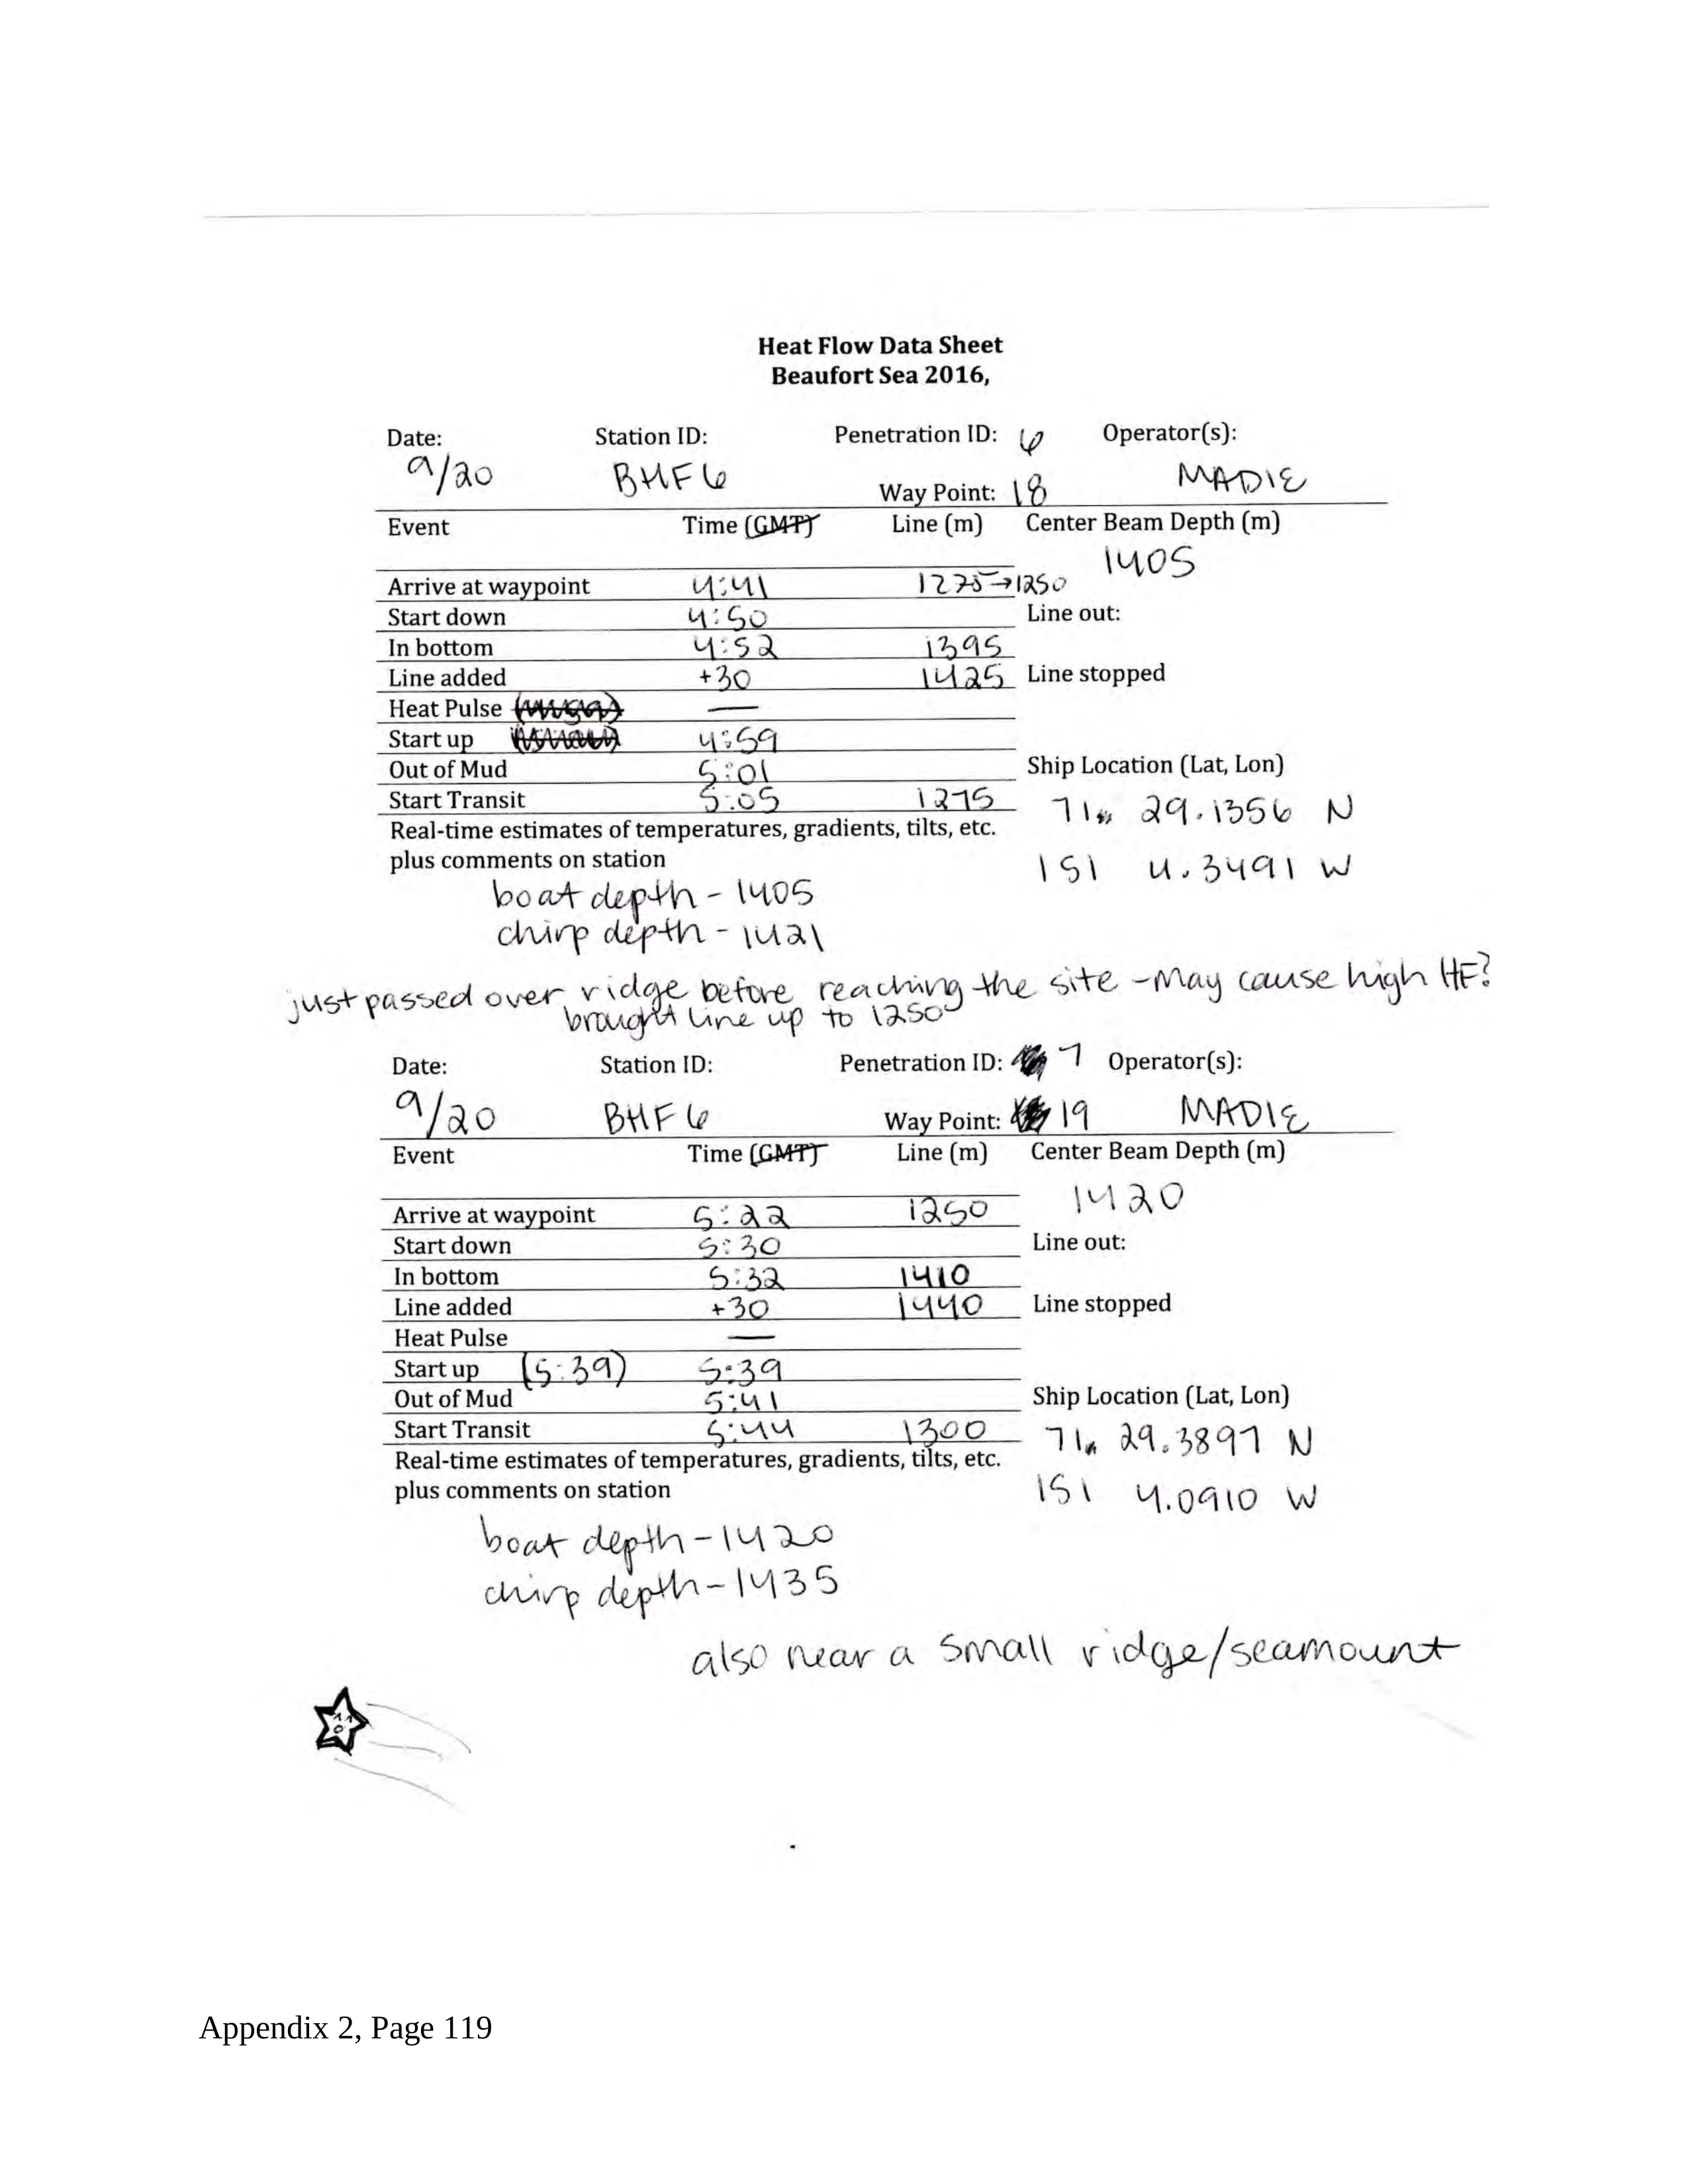 Heat Flow Data Sheet
Beaufort Sea 2016,
Date: Station ID: Penetration ID: 6 Operator(s):
9/20 BHF6 Way Point: 18 MADIE
Event Time (GMT) Line (m) Center Beam Depth (m)
1405
Arrive at waypoint 4:41 1275→1250
Start down 4:50 Line out:
In bottom 4:52 1395
Line added +30 1425 Line stopped
Heat Pulse —
Start up 4:59
Out of Mud 5:01 Ship Location (Lat, Lon)
Start Transit 5:05 1275 71 29.1356 N
Real-time estimates of temperatures, gradients, tilts, etc.
plus comments on station 151 4.3491 W
boat depth - 1405
chirp depth - 1421
just passed over ridge before reaching the site - may cause high HF?
brought line up to 1250
Date: Station ID: Penetration ID: 7 Operator(s):
9/20 BHF6 Way Point: 19 MADIE
Event Time (GMT) Line (m) Center Beam Depth (m)
1420
Arrive at waypoint 5:22 1250
Start down 5:30 Line out:
In bottom 5:32 1410
Line added +30 1440 Line stopped
Heat Pulse —
Start up (5:39) 5:39
Out of Mud 5:41 Ship Location (Lat, Lon)
Start Transit 5:44 1300 71 29.3897 N
Real-time estimates of temperatures, gradients, tilts, etc.
plus comments on station 151 4.0910 W
boat depth - 1420
chirp depth - 1435
also near a small ridge/seamount
Appendix 2, Page 119